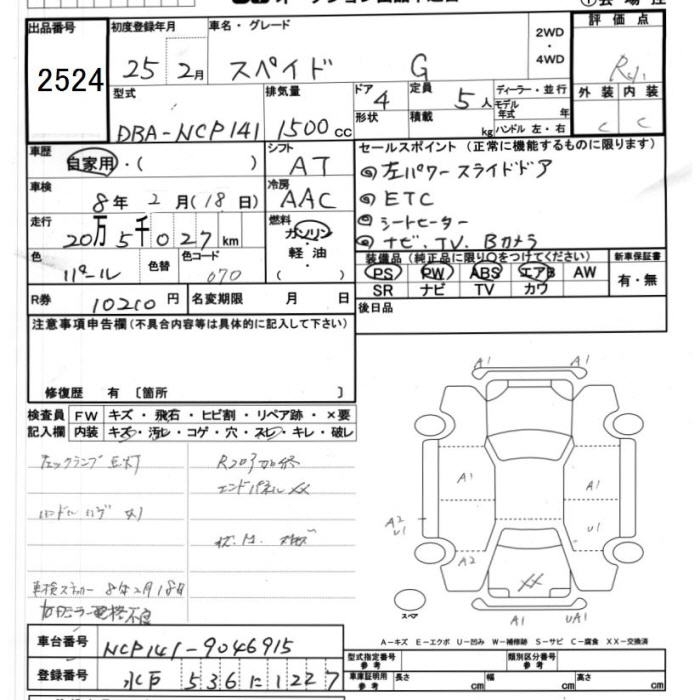 出品番号
2524
初度登録年月
25 2月
車名・グレード
スペイド G
2WD
・
4WD
評価点
R
外装 内装
C C
型式
DBA-NCP141
排気量
1500cc
ドア
4
形状
定員
5人
積載
kg
ディーラー・並行
モデル
年式 年
ハンドル 左・右
車歴
自家用・( )
シフト
AT
車検
8年2月(18日)
冷房
AAC
走行
20万5千027km
燃料
ガソリン
・
軽油
( )
色
パール
色替
色コード
070
セールスポイント (正常に機能するものに限ります)
左パワースライドドア
ETC
シートヒーター
ナビ、TV、Bカメラ
装備品 (純正品に限り○をつけてください)
PS PW ABS エアB AW
SR ナビ TV カワ
新車保証書
有・無
R券 10210円
名変期限 月 日
後日品
注意事項申告欄 (不具合内容等は具体的に記入して下さい)
修復歴 有 〔箇所 〕
検査員
記入欄
FW キズ・飛石・ヒビ割・リペア跡・×要
内装 キズ・汚レ・コゲ・穴・スレ・キレ・破レ
エンドパネルXX
車検ステッカー 8年2月18日
A1 A1
A1 A1
A2
U1
U1
A2
XX
A1 UA1
スペア
A－キズ E－エクボ U－凹み W－補修跡 S－サビ C－腐食 XX－交換済
車台番号
NCP141-9046915
登録番号
水戸 536 に 1227
型式指定番号
参考
類別区分番号
参考
車庫証明用
参考
長さ cm
幅 cm
高さ cm